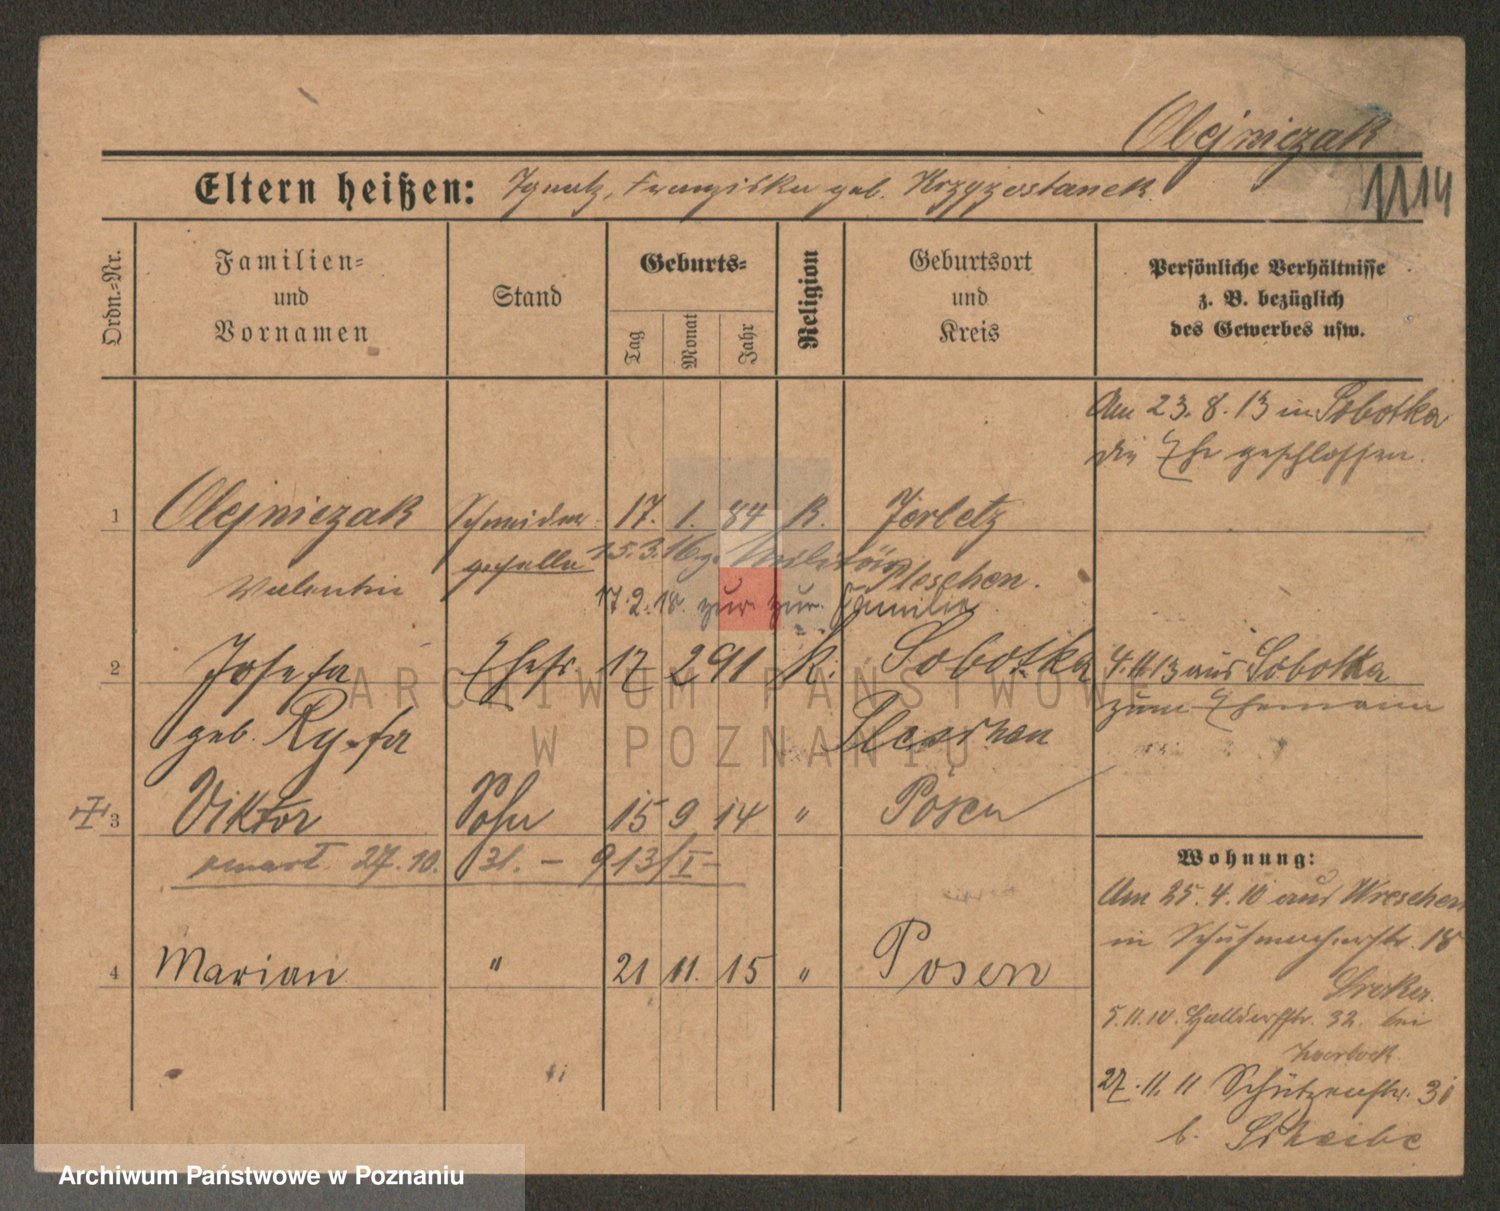 Olejniczak
Eltern heißen: Ignatz, Franziska geb. Krzyzostanek.
1114
Ordn.=Nr.
Familien=
und
Vornamen
Stand
Geburts=
Tag
Monat
Jahr
Religion
Geburtsort
und
Kreis
Persönliche Verhältnisse
z. B. bezüglich
des Gewerbes usw.
Am 23. 8. 13 in Sobotka
die Ehe geschlossen.
1 Olejniczak Schneider- 17. 1. 84 K.
geselle 15.3.16 z. Militär
Valentin Pleschen.
17.2.18. zur. zur. Familie
2 Josefa Ehefr. 17 2 91 K. Sobotka 4.11.13 aus Sobotka
geb. Pleschen zum Ehemann
3 Viktor Sohn 15 9 14 " Posen
27.10. 31. – 913/I –
4 Marian " 21 11. 15 " Posen
Wohnung:
Am 25. 4. 10 aus Wreschen
in Schuhmacherstr. 18
5.11.10. 32. bei
27.11.11 Schützenstr. 31
b. Scheibe
ARCHIWUM PAŃSTWOWE
W POZNANIU
Archiwum Państwowe w Poznaniu